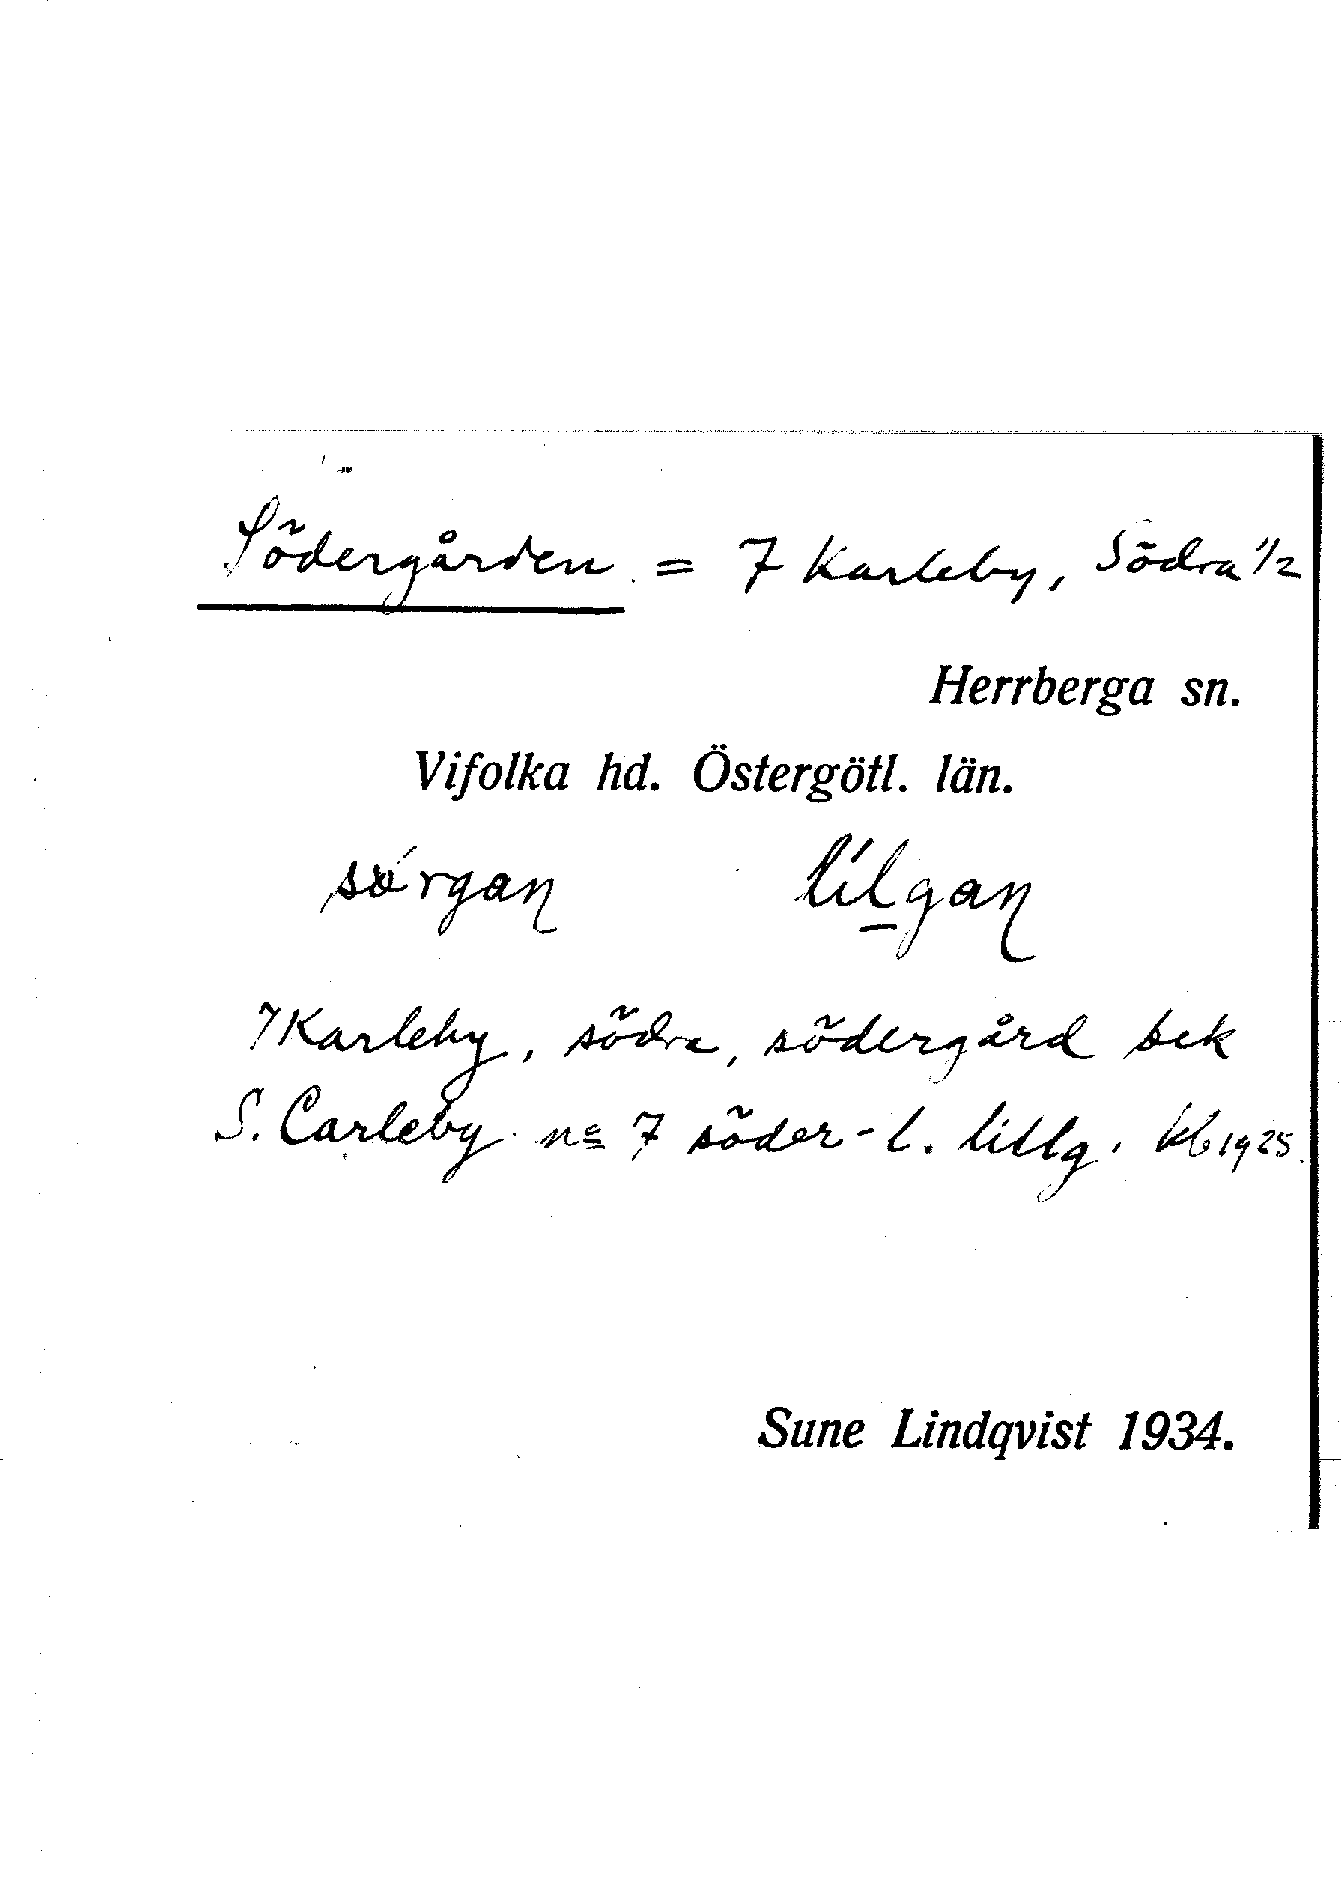 Södergården = 7 Karleby, Södra 1/2
Herrberga sn.
Vifolka hd. Östergötl. län.
sörgan lilgan
7 Karleby, södra, södergård bek
S. Carleby no 7 söder- l. lillg. kb 1925.
Sune Lindqvist 1934.